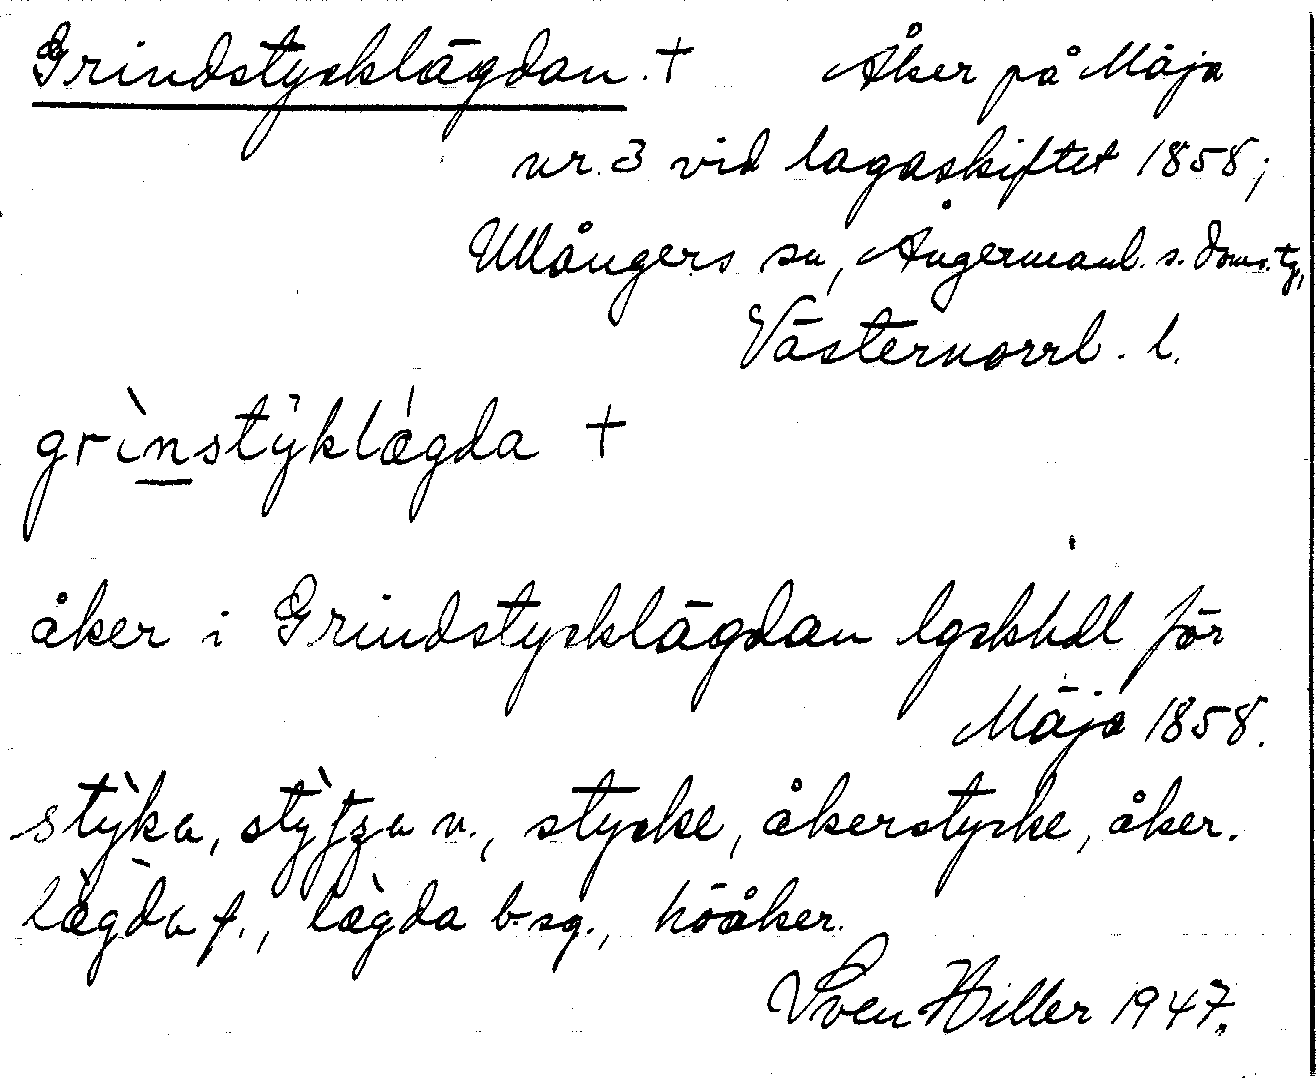 Grindstycklägdan. + Åker på Mäja
nr. 3 vid lagaskiftet 1858;
Ullångers sn, Ångermanl. s. doms. tg,
Västernorrl. l.
grìnstýklægda +
åker i Grindstycklägdan lgskhdl för
Mäja 1858.
stỳka, stỳtʃa n., stycke, åkerstycke, åker.
lægda f., lægda b. sg., höåker.
Sven Hiller 1947.